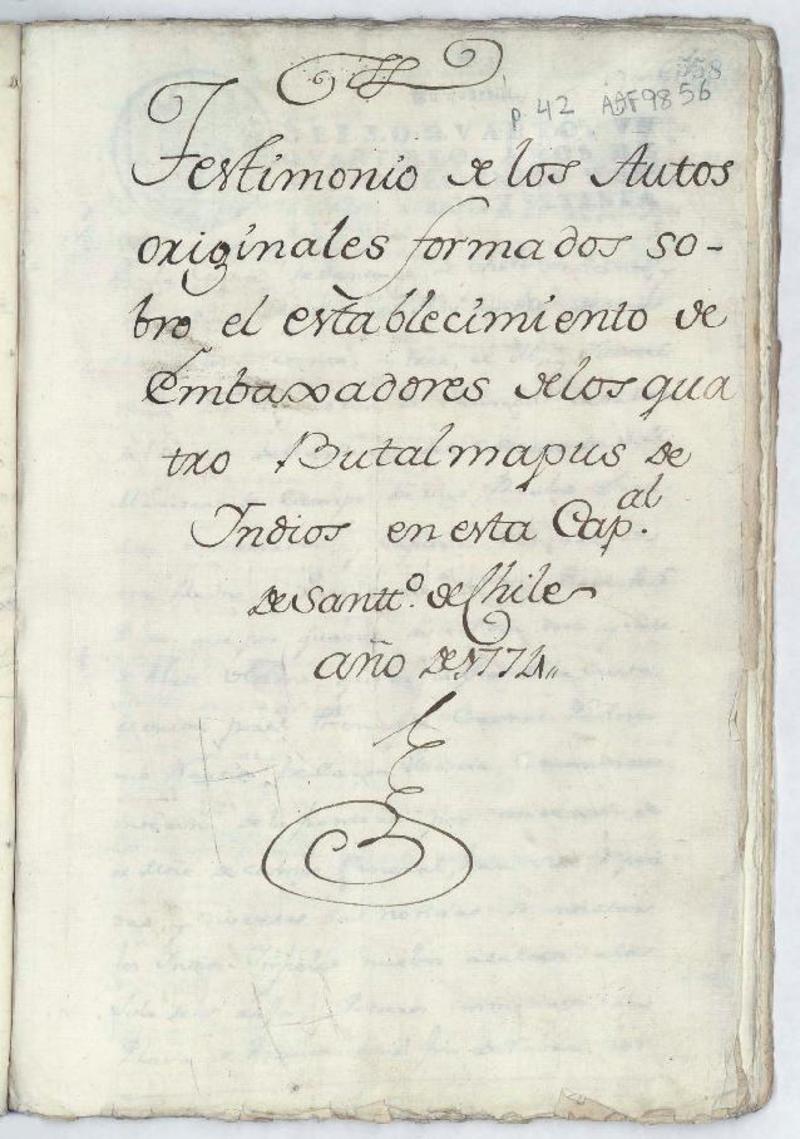 358
p 42 AAF9856
Testimonio de los Autos
originales formados so-
bre el establecimiento de
Embaxadores delos qua
tro Butalmapus de
Yndios en esta Cap.al
de Santt.o de Chile
año de 1774,,